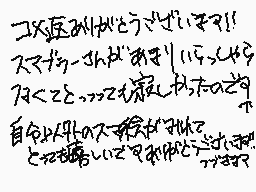 コメ返ありがとうございます!!
スマブラーさんがあまりいらっしゃら
なくてとっっても寂しかったのです
自分以外のスマ絵がみれて
とっても嬉しいですありがとうございます!